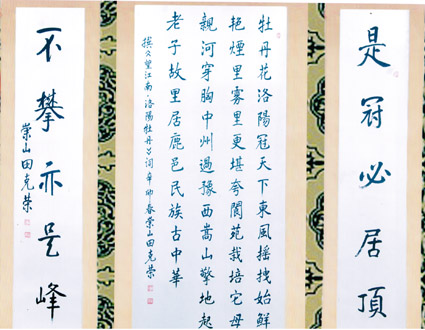 是冠必居頂
牡丹花洛陽冠天下東風摇拽始鮮
艳煙里雾里更堪夸閬苑栽培它母
親河穿胸中州過豫西嵩山擎地起
老子故里居鹿邑民族古中華
撰文望江南·洛陽牡丹词辛卯春崇山田克荣
不攀亦是峰
崇山田克荣